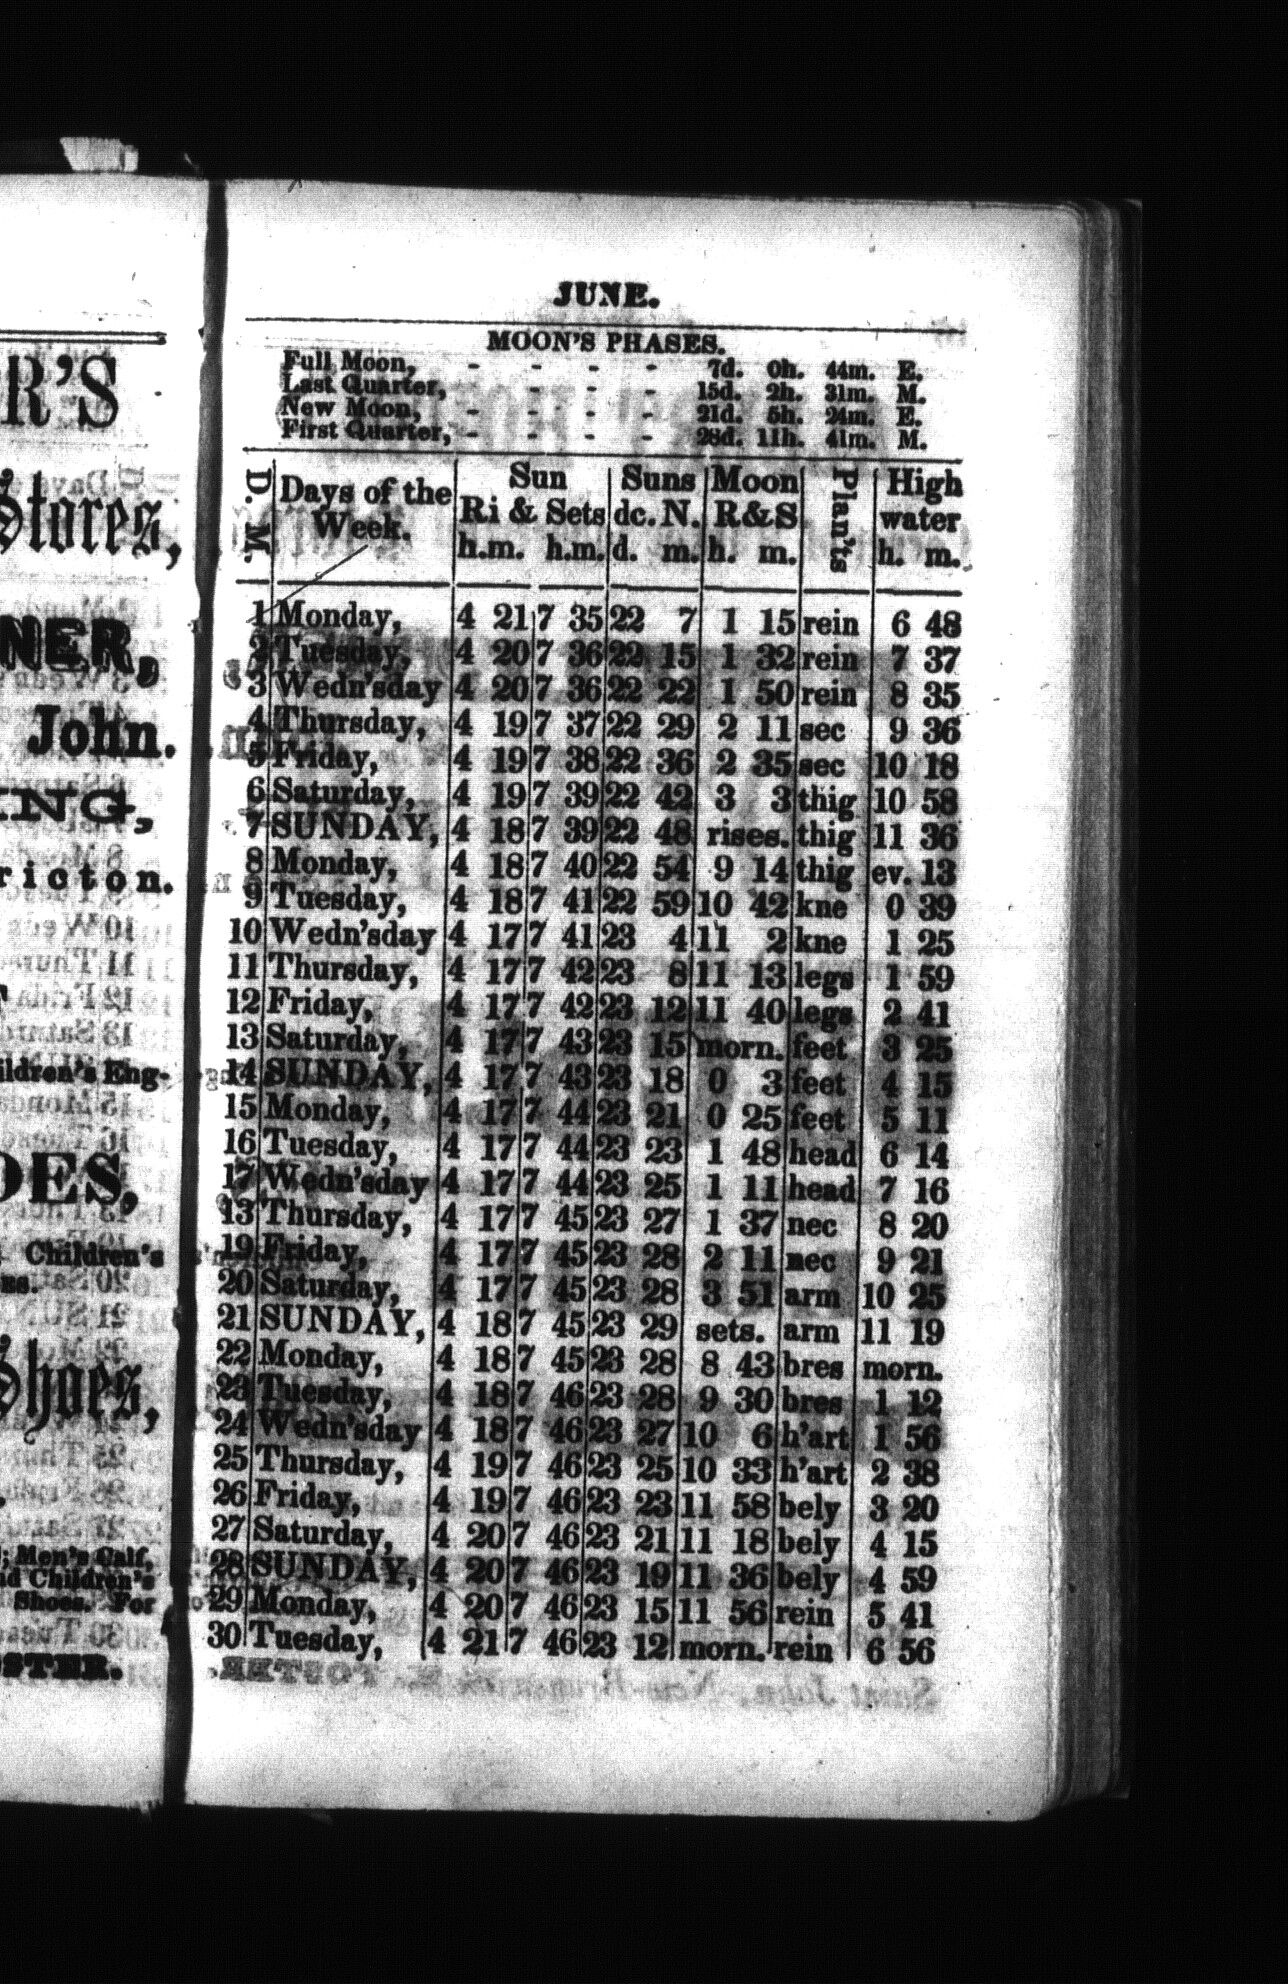 R'S
Stores,
NER,
John.
ING,
ricton.
ildren's Eng-
OES,
Children's
Shoes,
; Men's Calf,
nd Children's
Shoes. For
STER.
JUNE.
MOON'S PHASES.
Full Moon, - - - - 7d. 0h. 44m. E.
Last Quarter, - - - 15d. 2h. 31m. M.
New Moon, - - - - 21d. 5h. 24m. E.
First Quarter, - - - - 28d. 11h. 41m. M.
D. M. Days of the Week. Sun Ri & Sets h.m. h.m. Suns dc. N. d. m. Moon R&S h. m. Plan'ts High water h. m.
1 Monday, 4 21 7 35 22 7 1 15 rein 6 48
2 Tuesday, 4 20 7 36 22 15 1 32 rein 7 37
3 Wedn'sday 4 20 7 36 22 22 1 50 rein 8 35
4 Thursday, 4 19 7 37 22 29 2 11 sec 9 36
5 Friday, 4 19 7 38 22 36 2 35 sec 10 18
6 Saturday, 4 19 7 39 22 42 3 3 thig 10 58
7 SUNDAY, 4 18 7 39 22 48 rises. thig 11 36
8 Monday, 4 18 7 40 22 54 9 14 thig ev. 13
9 Tuesday, 4 18 7 41 22 59 10 42 kne 0 39
10 Wedn'sday 4 17 7 41 23 4 11 2 kne 1 25
11 Thursday, 4 17 7 42 23 8 11 13 legs 1 59
12 Friday, 4 17 7 42 23 12 11 40 legs 2 41
13 Saturday, 4 17 7 43 23 15 morn. feet 3 25
14 SUNDAY, 4 17 7 43 23 18 0 3 feet 4 15
15 Monday, 4 17 7 44 23 21 0 25 feet 5 11
16 Tuesday, 4 17 7 44 23 23 1 48 head 6 14
17 Wedn'sday 4 17 7 44 23 25 1 11 head 7 16
13 Thursday, 4 17 7 45 23 27 1 37 nec 8 20
19 Friday, 4 17 7 45 23 28 2 11 nec 9 21
20 Saturday, 4 17 7 45 23 28 3 51 arm 10 25
21 SUNDAY, 4 18 7 45 23 29 sets. arm 11 19
22 Monday, 4 18 7 45 23 28 8 43 bres morn.
23 Tuesday, 4 18 7 46 23 28 9 30 bres 1 12
24 Wedn'sday 4 18 7 46 23 27 10 6 h'art 1 56
25 Thursday, 4 19 7 46 23 25 10 33 h'art 2 38
26 Friday, 4 19 7 46 23 23 11 58 bely 3 20
27 Saturday, 4 20 7 46 23 21 11 18 bely 4 15
28 SUNDAY, 4 20 7 46 23 19 11 36 bely 4 59
29 Monday, 4 20 7 46 23 15 11 56 rein 5 41
30 Tuesday, 4 21 7 46 23 12 morn. rein 6 56